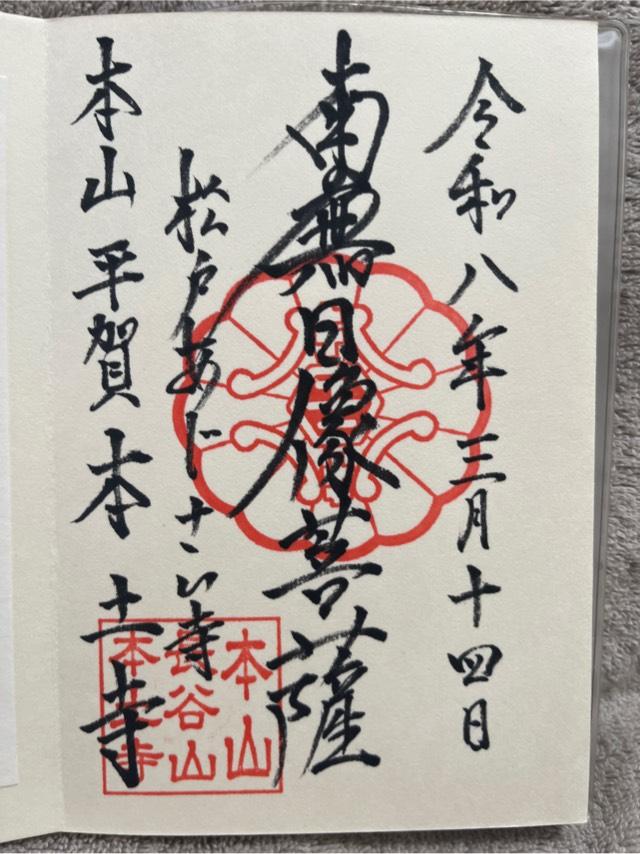 令和八年三月十四日
南無日像菩薩
松戸あじさい寺
本山平賀本土寺
本山
長谷山
本土寺